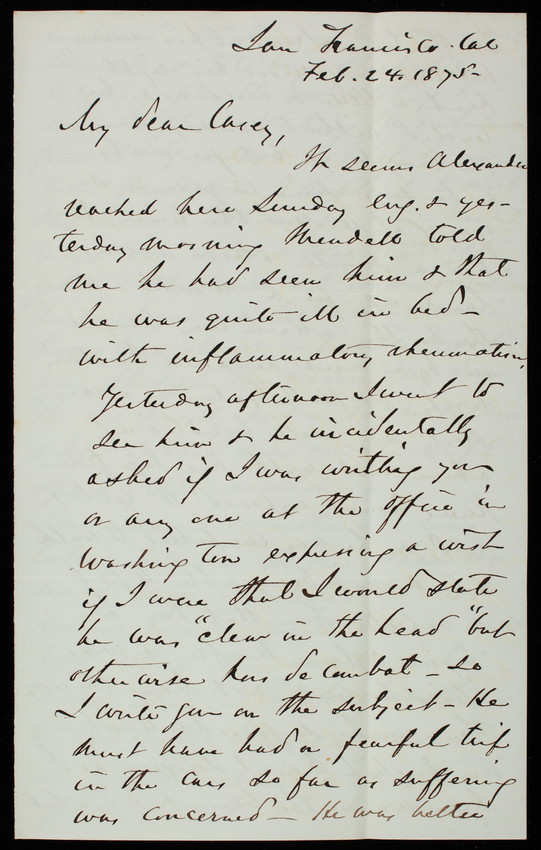 San Francisco. Cal
Feb. 24. 1875-
My dear Casey,
It seems Alexander
reached here Sunday Evg. & yes-
terday morning Mendell told
me he had seen him & that
he was quite ill in bed-
with inflammatory rheumatism,
Yesterday afternoon I went to
see him & he incidentally
asked if I was writing you
or any one at the office in
Washington expressing a wish
if I were that I would state
he was "clear in the head" but
otherwise hors de combat - so
I write you on the subject - He
must have had a fearful trip
in the cars so far as suffering
was concerned - He was better